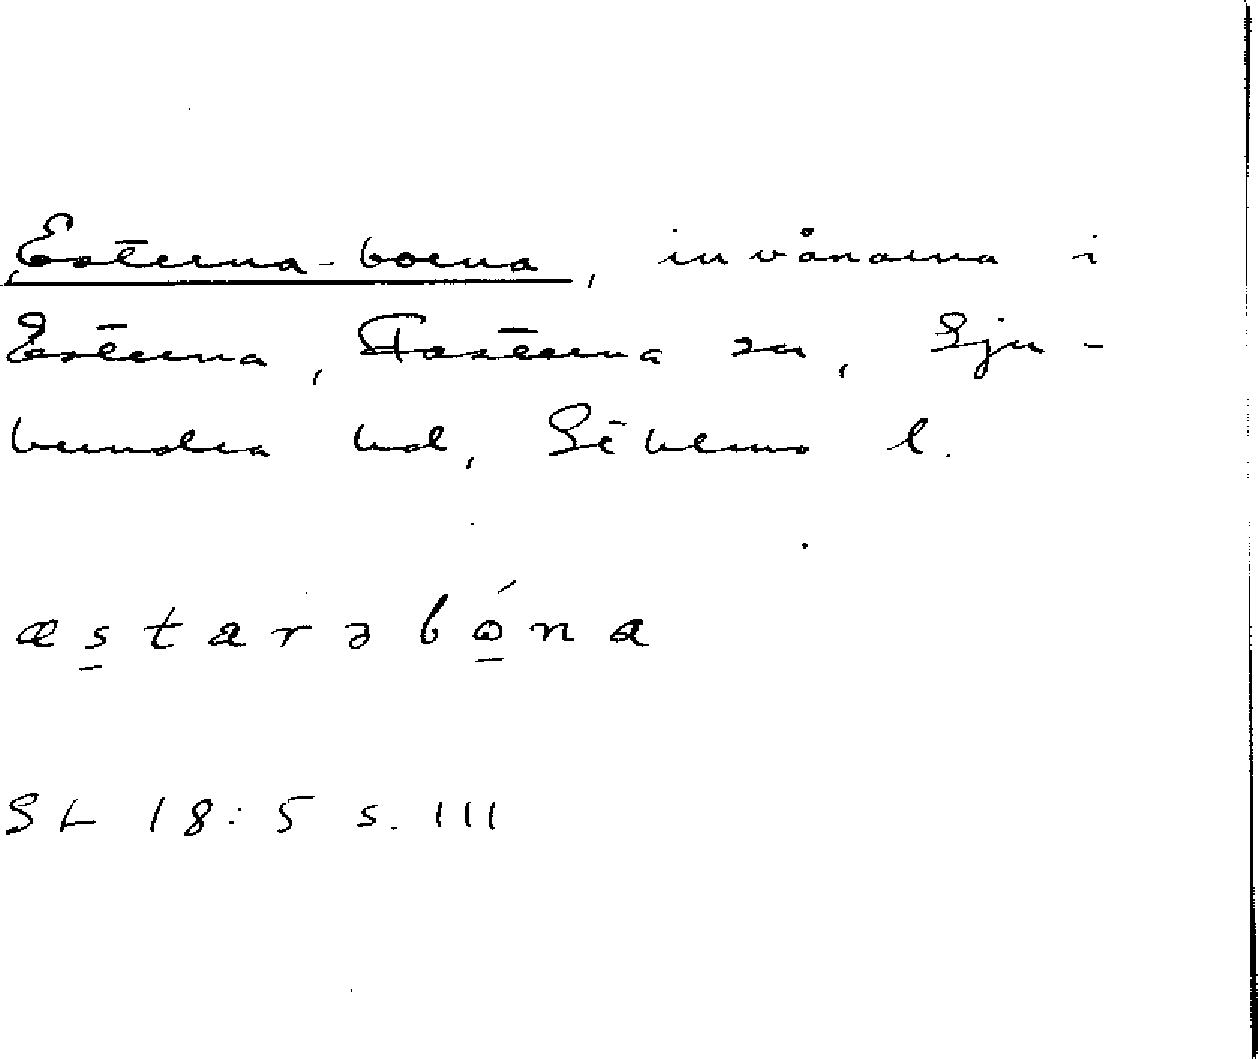 Esterna-borna, invånarna i
Esterna, Fasterna sn, Sju-
hundra hd, Sthlms l.
æstarəbóna
SL 18:5 s. 111